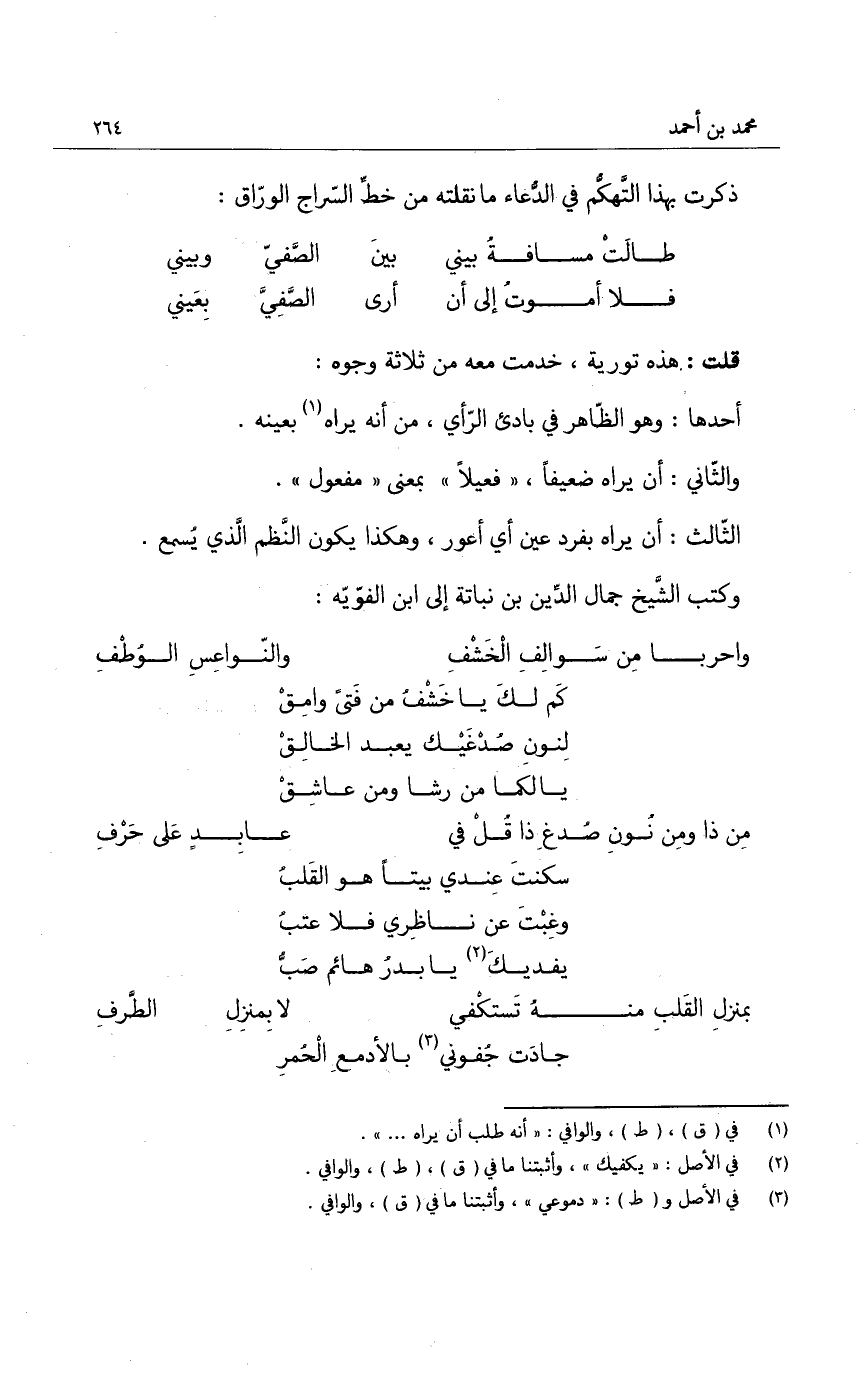 محمد بن أحمد ٢٦٤
ذكرت بهذا التَّهكُّم في الدُّعاء ما نقلته من خطِّ السّراج الورّاق :
طالَتْ مسافةُ بيني بينَ الصَّفيّ وبيني
فلا أموتُ إلى أن أرى الصَّفِيَّ بِعَيني
قلت : هذه تورية ، خدمت معه من ثلاثة وجوه :
أحدها : وهو الظّاهر في بادئ الرّأي ، من أنه يراه(١) بعينه .
والثّاني : أن يراه ضعيفاً ، « فعيلاً » بمعنى « مفعول » .
الثّالث : أن يراه بفرد عين أي أعور ، وهكذا يكون النَّظم الَّذي يُسمع .
وكتب الشَّيخ جمال الدِّين بن نباتة إلى ابن الفوّيّه :
واحربا مِن سَوالِفِ الْخَشْفِ والنّواعِسِ الوُطْفِ
كَم لكَ يا خَشْفُ من فَتىً وامِقْ
لِنون صُدْغَيْك يعبد الخالِقْ
يا لكما من رشا ومن عاشِقْ
مِن ذا ومِن نُونِ صُدغِ ذا قُلْ في عابِدٍ عَلى حَرْفِ
سكنتَ عِندي بيتاً هو القَلبُ
وغِبْتَ عن ناظِري فلا عتبُ
يفديكَ(٢) يا بدرُ هائم صَبُّ
بِمنزلِ القَلبِ منهُ تَستكْفي لا بِمنزِلِ الطَّرفِ
جادَت جُفوني(٣) بالأدمعِ الْحُمرِ
(١) في ( ق ) ، ( ط ) ، والوافي : « أنه طلب أن يراه ... » .
(٢) في الأصل : « يكفيك » ، وأثبتنا ما في ( ق ) ، ( ط ) ، والوافي .
(٣) في الأصل و ( ط ) : « دموعي » ، وأثبتنا ما في ( ق ) ، والوافي .